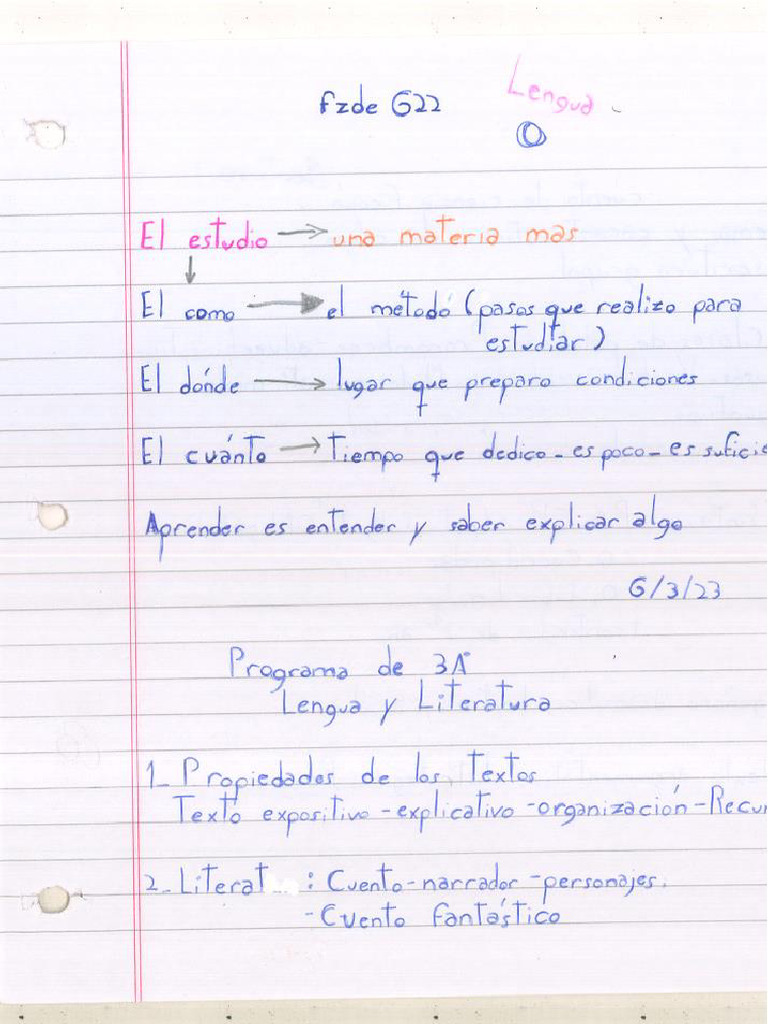 fzde G22
Lengua
El estudio → una materia mas
El como → el método (pasos que realizo para
estudiar)
El dónde → lugar que preparo condiciones
El cuánto → Tiempo que dedico - es poco - es sufici
Aprender es entender y saber explicar algo
6/3/23
Programa de 3A°
Lengua y Literatura
1_ Propiedades de los Textos
Texto expositivo - explicativo - organización - Recur
2_ Literat : Cuento - narrador - personajes.
- Cuento fantástico